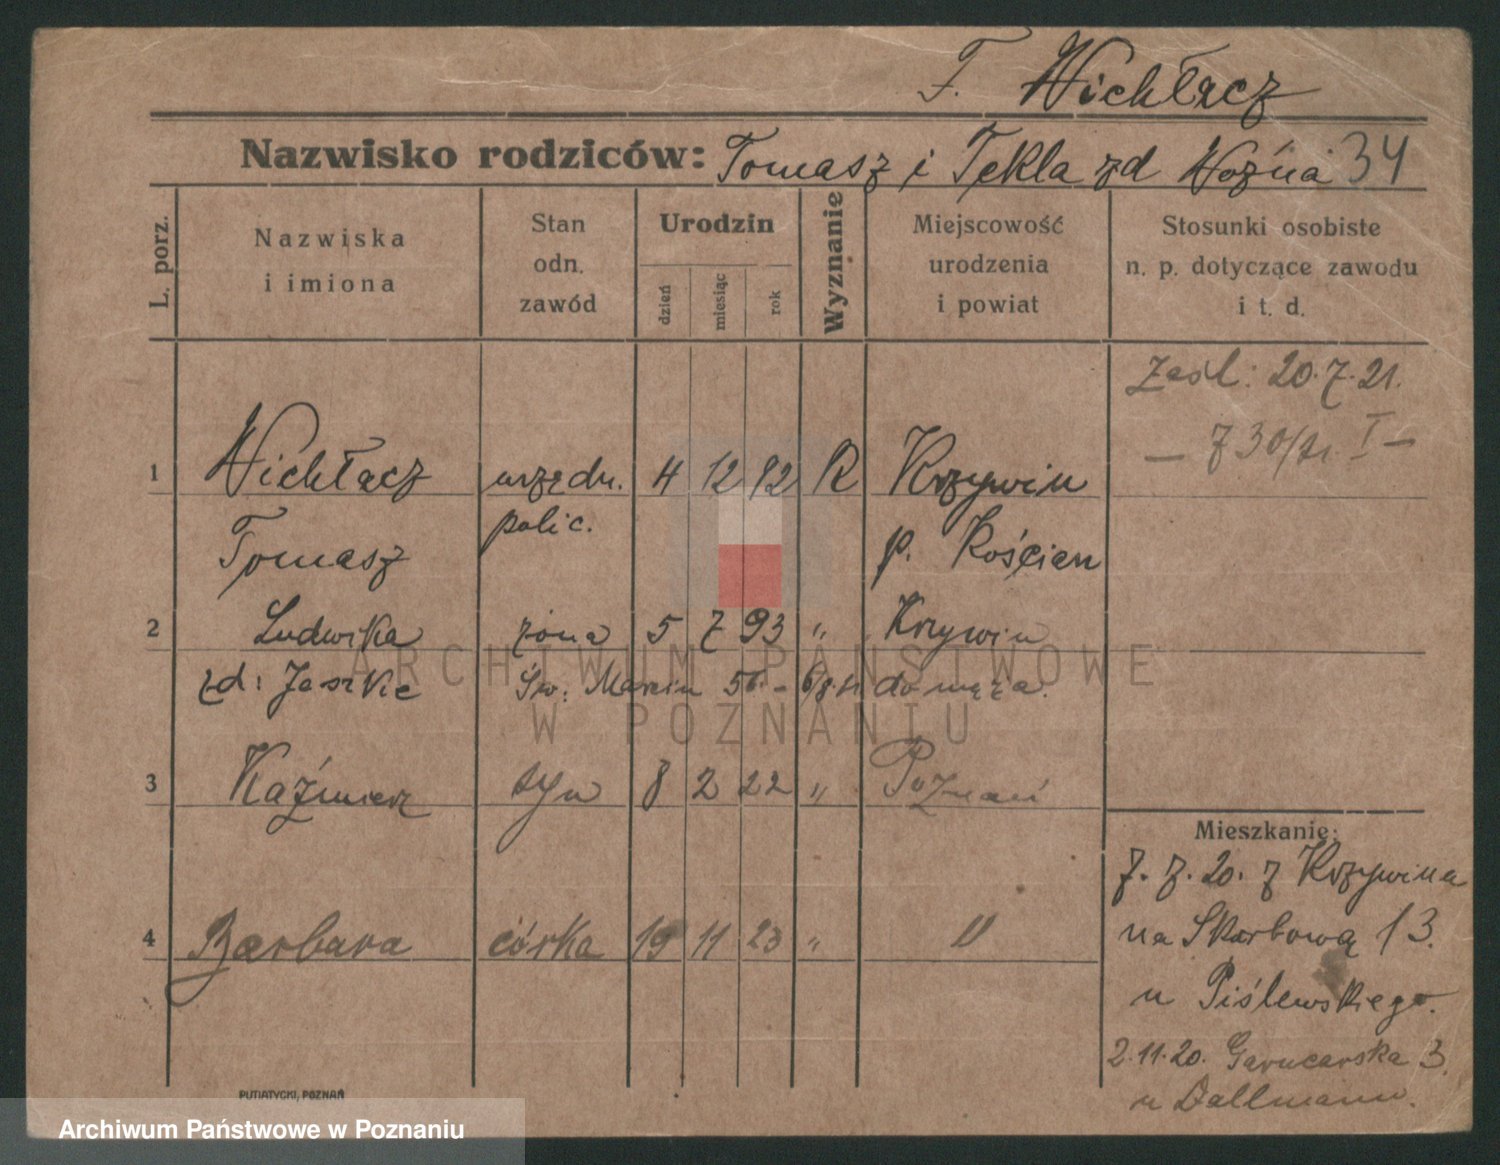 T. Wichłacz
Nazwisko rodziców: Tomasz i Tekla zd Woźna 34
L. porz.
Nazwiska i imiona
Stan odn. zawód
Urodzin
dzień
miesiąc
rok
Wyznanie
Miejscowość urodzenia i powiat
Stosunki osobiste n. p. dotyczące zawodu i t. d.
Zaśl: 20.7.21.
1 Wichłacz urzędn. 4 12 82 R Krzywin
Tomasz polic. p. Kościan
2 Ludwika żona 5 7 93 " Krzywin
zd: Jaszkie Św: Marcin 56 - 6/8.21 do męża.
3 Kaźmierz syn 8 2 22 " Poznań
4 Barbara córka 19 11 23 " "
Mieszkanie:
7. 7. 20. z Krzywina
na Skarbową 13.
u Piślewskiego.
2.11.20. Garncarska 3.
u Dallmann.
PUTIATYCKI, POZNAŃ
ARCHIWUM PAŃSTWOWE
W POZNANIU
Archiwum Państwowe w Poznaniu